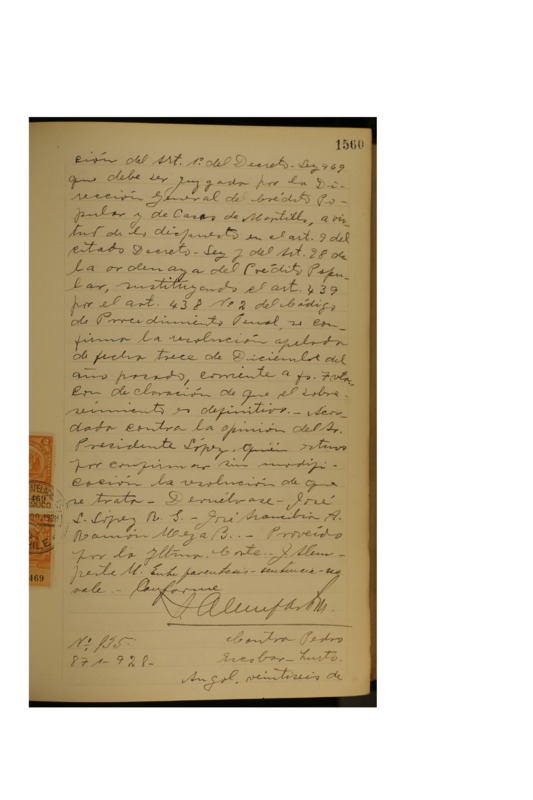 1560
ción del Art. 1º del Decreto-Ley 469
que debe ser juzgada por la Di-
rección General de Crédito Po-
pular y de Casas de Martillo, a vir-
tud de lo dispuesto en el art. 9 del
citado Decreto-Ley y del Art. 28 de
la ordenanza del Crédito Popu-
lar, sustituyendo el art. 439
por el art. 438 Nº 2 del Código
de Procedimiento Penal, se con-
firma la resolución apelada
de fecha trece de Diciembre del
año pasado, corriente a fs. 7 vta.
con declaración de que el sobre-
seimiento es definitivo. - Acor-
dada contra la opinión del Sr.
Presidente López, quién estuvo
por confirmar sin modifi-
cación la resolución de que
se trata - Devuélvase - José
L. López - José A.
Ramón Meza B. - Proveído
por la Iltma. Corte. -
Entre paréntesis - sentencia - no
vale. - Conforme
469
CHILE
469
Nº 935-
871-928-
Contra Pedro
Escobar - hurto.
Angol, veintiseis de